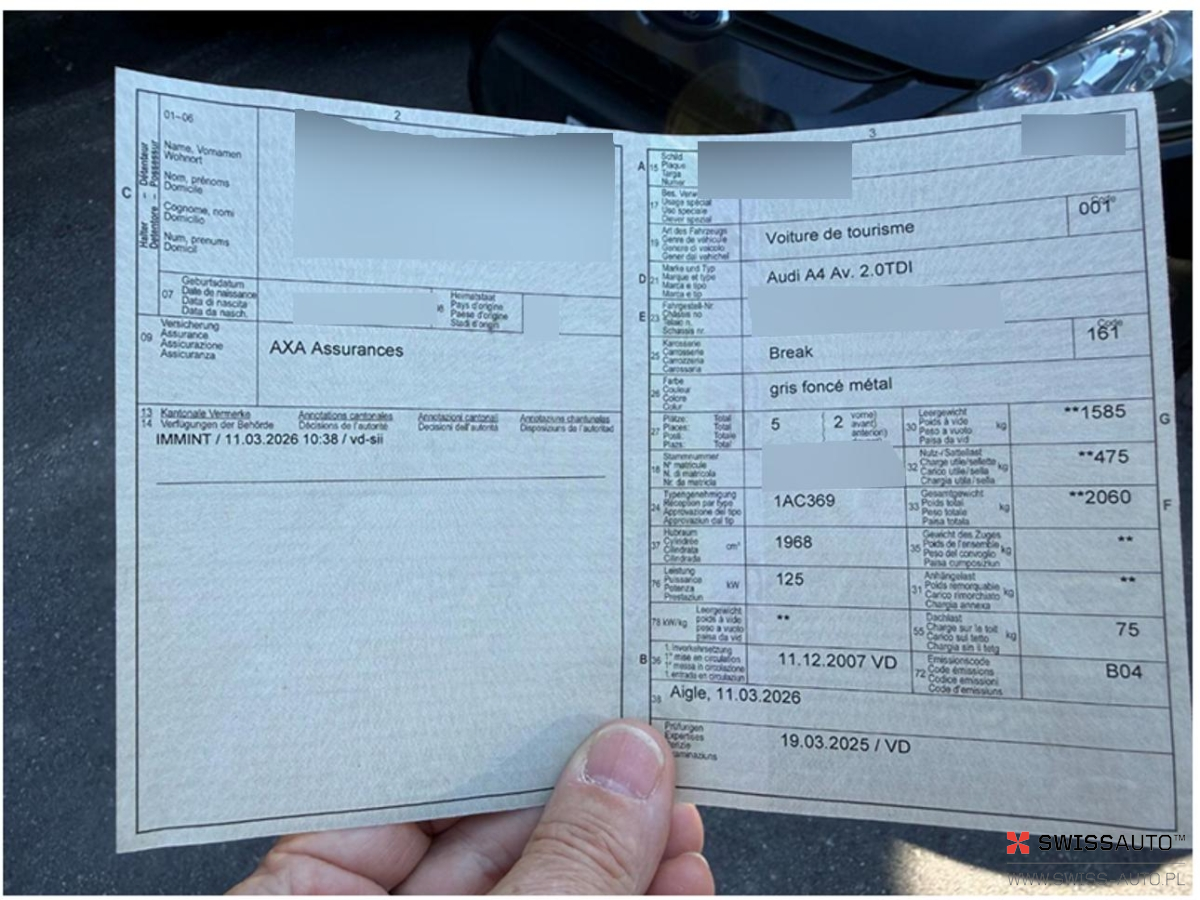 2
01–06
Name, Vornamen
Wohnort
Nom, prénoms
Domicile
Cognome, nomi
Domicilio
Num, prenums
Domicil
C
Halter – Détenteur
Detentore – Possessur
07
Geburtsdatum
Date de naissance
Data di nascita
Data da nasch.
Heimatstaat
Pays d'origine
Paese d'origine
Stadi d'origin
09
Versicherung
Assurance
Assicurazione
Assicuranza
AXA Assurances
13 Kantonale Vermerke Annotations cantonales Annotazioni cantonali Annotaziuns chantunalas
14 Verfügungen der Behörde Décisions de l'autorité Decisioni dell'autorità Disposiziuns da l'autoritad
IMMINT / 11.03.2026 10:38 / vd-sii
3
A 15
Schild
Plaque
Targa
Numer
17
Bes. Verw.
Usage spécial
Uso speciale
Diever spezial
19
Art des Fahrzeugs
Genre de véhicule
Genere di veicolo
Gener dal vehichel
Voiture de tourisme
Code
001
D 21
Marke und Typ
Marque et type
Marca e tipo
Marca e tip
Audi A4 Av. 2.0TDI
E 23
Fahrgestell-Nr.
Châssis no
Telaio n.
Schassis nr.
25
Karosserie
Carrosserie
Carrozzeria
Carossaria
Break
Code
161
26
Farbe
Couleur
Colore
Colur
gris foncé métal
27
Plätze: Total
Places: Total
Posti: Totale
Plazs: Total
5
2
vorne)
avant)
anteriori)
30
Leergewicht
Poids à vide
Peso a vuoto
Paisa da vid
kg
**1585
G
18
Stammnummer
N° matricule
N. di matricola
Nr. da matricla
32
Nutz-/Sattellast
Charge utile/sellette
Carico utile/sella
Chargia utila/sella
kg
**475
24
Typengenehmigung
Réception par type
Approvazione del tipo
Approvaziun dal tip
1AC369
33
Gesamtgewicht
Poids total
Peso totale
Paisa totala
kg
**2060
F
37
Hubraum
Cylindrée
Cilindrata
Cilindrada
cm³
1968
35
Gewicht des Zuges
Poids de l'ensemble
Peso del convoglio
Paisa cumposiziun
kg
**
76
Leistung
Puissance
Potenza
Prestaziun
kW
125
31
Anhängelast
Poids remorquable
Carico rimorchiato
Chargia annexa
kg
**
78 kW/kg
Leergewicht
poids à vide
peso a vuoto
paisa da vid
**
55
Dachlast
Charge sur le toit
Carico sul tetto
Chargia sin il tetg
kg
75
B 36
1. Inverkehrsetzung
1re mise en circulation
1a messa in circolazione
1. entrada en circulaziun
11.12.2007 VD
72
Emissionscode
Code émissions
Codice emissioni
Code d'emissiuns
B04
38
Aigle, 11.03.2026
Prüfungen
Expertises
19.03.2025 / VD
SWISSAUTO™
WWW.SWISS-AUTO.PL